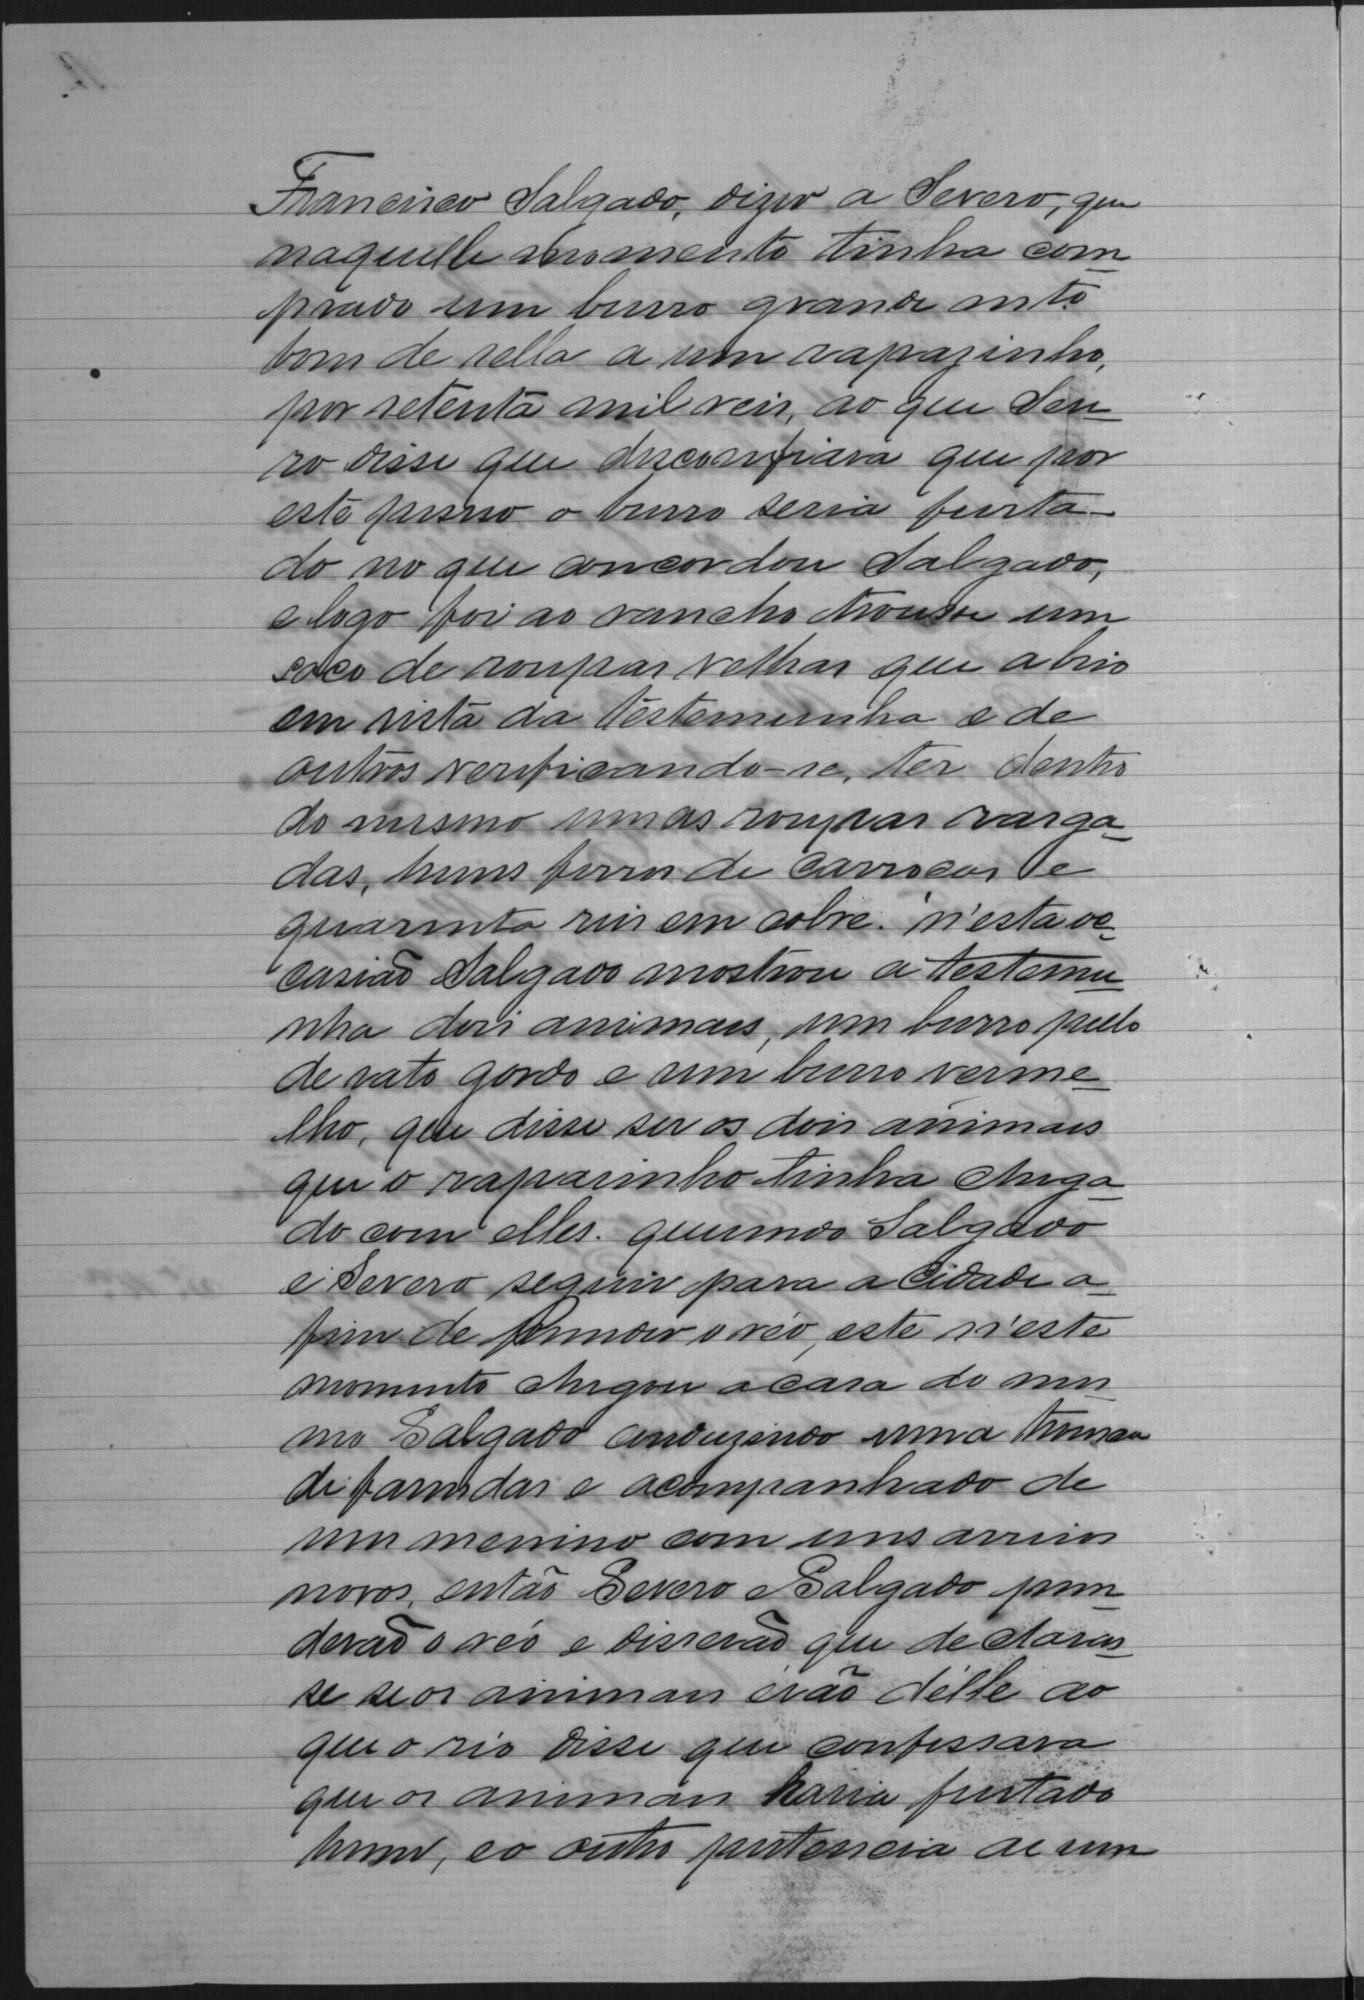 Francisco Salgado, dizer a Severo, que
naquelle momento tinha com
prado um burro grande mtº
bom de sella a um rapazinho,
por setenta mil reis, ao que Seve
ro disse que desconfiava que por
este preço o burro seria furta-
do no que concordou Salgado,
e logo foi ao rancho trouse um
saco de roupas velhas que abrio
em vista da testemunha e de
outros verificando-se, ter dentro
do mesmo umas roupas rasga
das, huns ferros de carroças e
quarenta reis em cobre. n'esta oc
casião Salgado mostrou a testemu
nha dois animais, um burro pello
de rato gordo e um burro verme
lho, que disse ser os dois animais
que o rapasinho tinha chega
do com elles. querendo Salgado
e Severo seguir para a Cidade a
fim de prender o réo, este n'este
momento chegou a casa do mes
mo Salgado conduzindo uma trouxa
de fasendas e acompanhado de
um menino com uns arreios
novos, então Severo e Salgado pren
derão o réo e disserão que declaras
se se os animais erão d'elle ao
que o réo disse que confessava
que os animais havia furtado
hum, e o outro pertencia a um